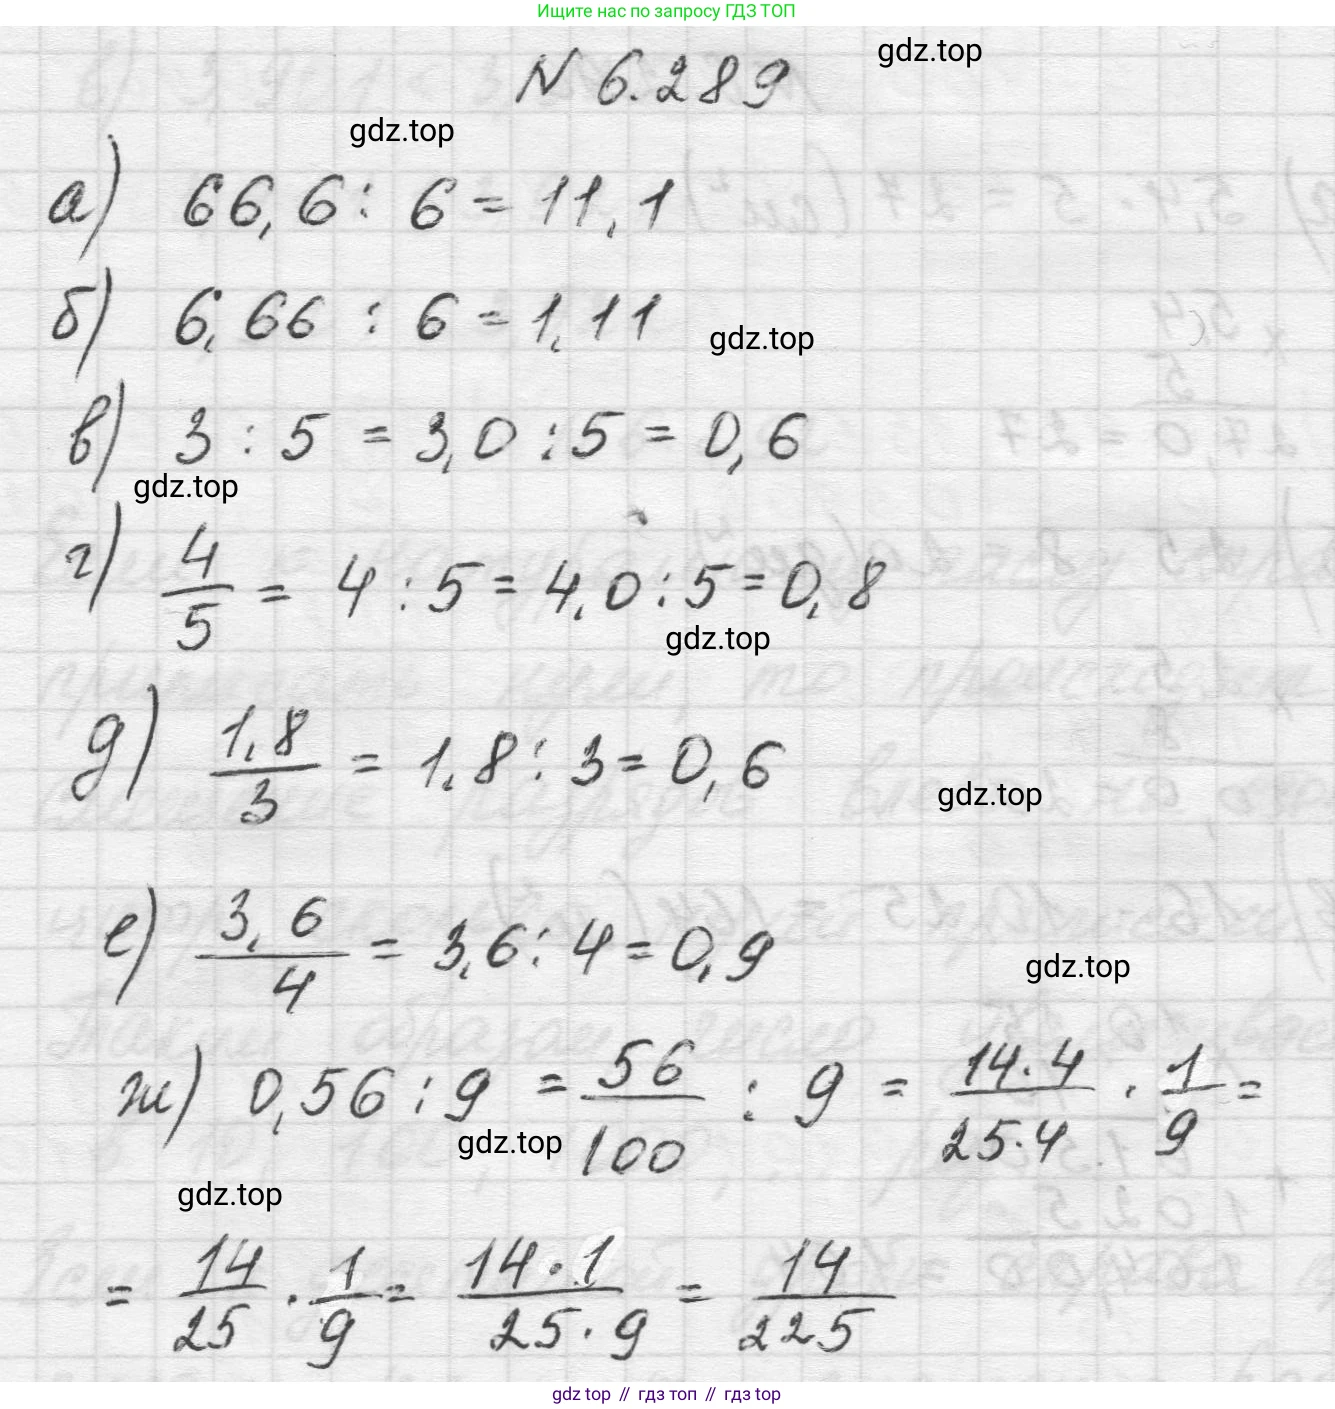 Ищите нас по запросу ГДЗ ТОП
N 6.289
gdz.top
gdz.top
а) 66,6 : 6 = 11,1
б) 6,66 : 6 = 1,11
gdz.top
в) 3 : 5 = 3,0 : 5 = 0,6
gdz.top
г) 4/5 = 4 : 5 = 4,0 : 5 = 0,8
gdz.top
д) 1,8/3 = 1,8 : 3 = 0,6
gdz.top
е) 3,6/4 = 3,6 : 4 = 0,9
gdz.top
ж) 0,56 : 9 = 56/100 : 9 = 14·4/25·4 · 1/9 =
gdz.top
gdz.top
= 14/25 · 1/9 = 14·1/25·9 = 14/225
gdz top // гдз топ // гдз top